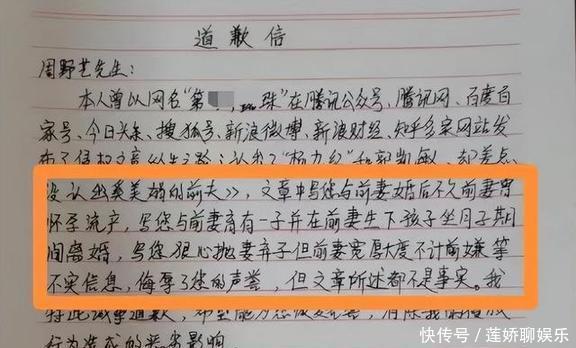 道歉信
周野芒先生：
本人曾以网名"第 珠"在腾讯公众号、腾讯网、百度百
家号、今日头条、搜狐号、新浪微博、新浪财经、知乎多家网站发
布了侵权文章
没认出奚美娟的前夫》，文章中写您与前妻婚后不久前妻曾
怀孕流产，写您与前妻育有一子并在前妻生下孩子坐月子期
间离婚，写您狠心抛妻弃子但前妻宽厚大度不计前嫌等
不实信息，侮辱了您的声誉，但文章所述都不是事实。我
特此诚挚道歉，
行为造成的恶劣影响
快传号/莲娇聊娱乐